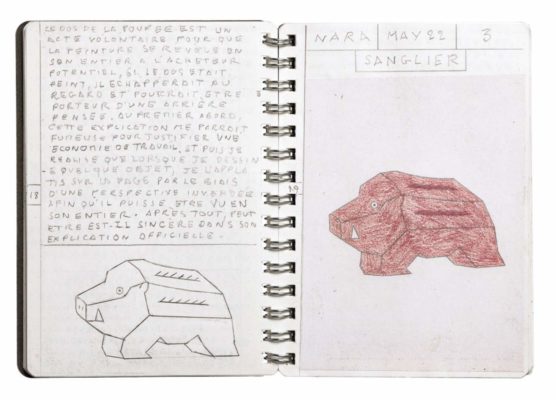 LE DOS DE LA POUPEE EST UN
ACTE VOLONTAIRE POUR QUE
LA PEINTURE SE REVELE EN
SON ENTIER A L'ACHETEUR
POTENTIEL, SI LE DOS ETAIT
PEINT, IL ECHAPPERAIT AU
REGARD ET POURRAIT ETRE
PORTEUR D'UNE ARRIÈRE
PENSÉE, AU PREMIER ABORD,
CETTE EXPLICATION ME PARAIT
FUMEUSE POUR JUSTIFIER UNE
ECONOMIE DE TRAVAIL, ET PUIS JE
REALISE QUE LORSQUE JE DESSINE
QUELQUE OBJET, JE L'APPLA-
TIS SUR LA PAGE PAR LE BIAIS
D'UNE PERSPECTIVE INVERSEE
AFIN QU'IL PUISSE ETRE VU EN
SON ENTIER. APRES TOUT, PEUT
ETRE EST-IL SINCERE DANS SON
EXPLICATION OFFICIELLE.
18
19
NARA MAY 22 3
SANGLIER